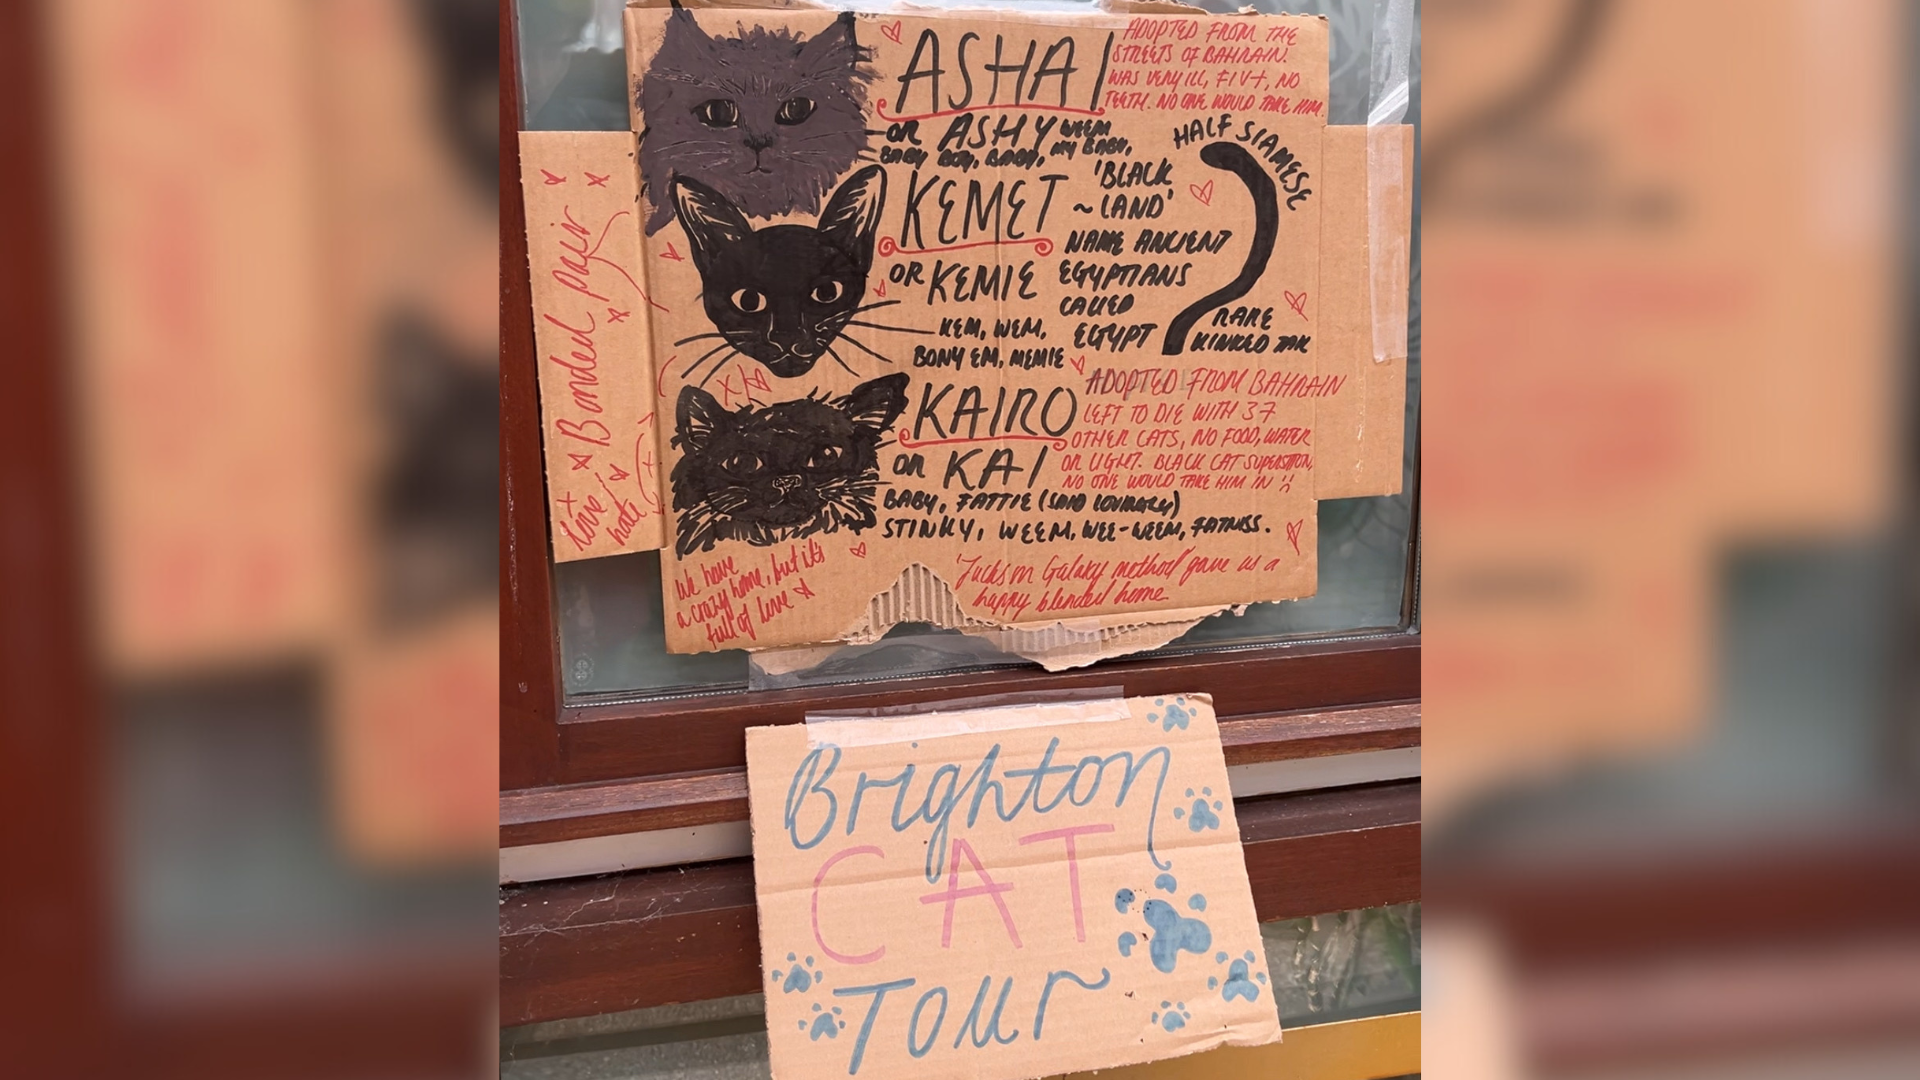 ASHAI
ADOPTED FROM THE
STREETS OF BAHRAIN.
WAS VERY ILL, FIV+, NO
TEETH. NO ONE WOULD TAKE HIM.
OR ASHY WEEM
BABY BOY, BABY, MY BABY,
HALF SIAMESE
KEMET
'BLACK
~ LAND'
NAME ANCIENT
EGYPTIANS
CALLED
EGYPT
OR KEMIE
KEM, WEM,
BONY EM, MEMIE
RARE
KINKED TAIL
KAIRO
OR KAI
ADOPTED FROM BAHRAIN
LEFT TO DIE WITH 37
OTHER CATS, NO FOOD, WATER
OR LIGHT. BLACK CAT SUPERSTITION,
NO ONE WOULD TAKE HIM IN
BABY, FATTIE (SAID LOVINGLY)
STINKY, WEEM, WEE-WEEM, FATNISS.
Bonded pair
Love +
hate
We have
a crazy home, but it's
full of love
'Jackson Galaxy method' gave us a
happy blended home
Brighton
CAT
Tour